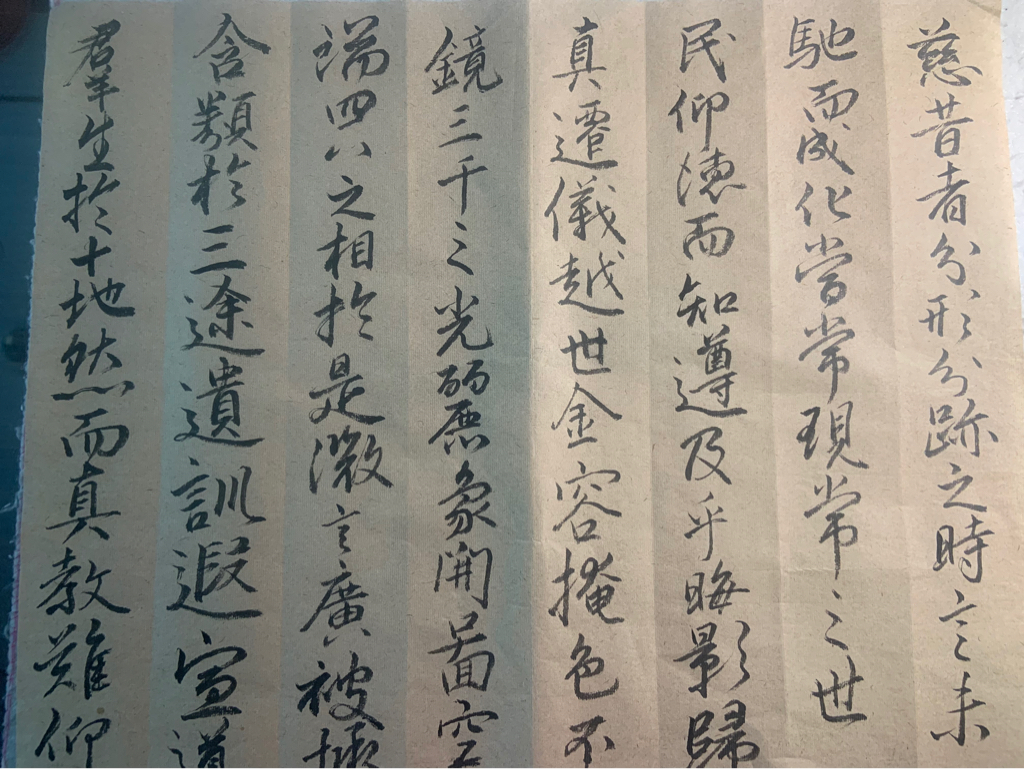 慈昔者分形分跡之時言未
馳而成化當常現常之世
民仰德而知遵及乎晦影歸
真遷儀越世金容掩色不
鏡三千之光麗象開圖空
端四八之相於是微言廣被拯
含類於三途遺訓遐宣導
羣生於十地然而真教難仰